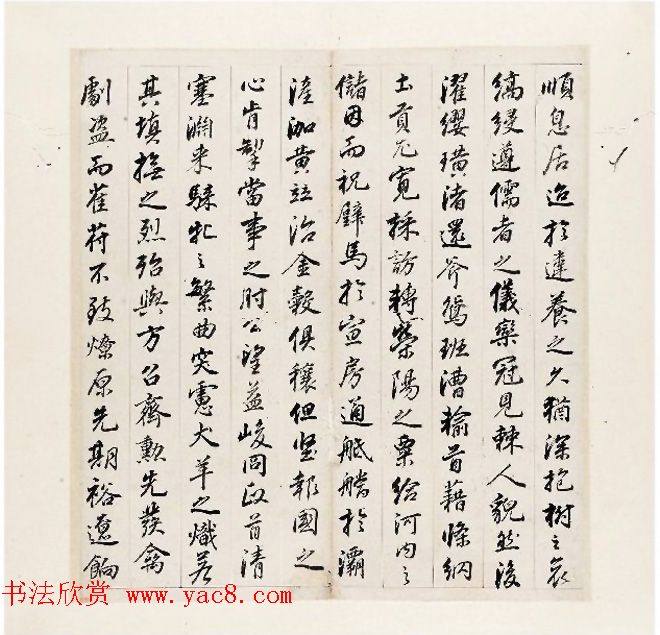 順息居迨於違養之久猶深抱樹之哀
縞綅遵儒者之儀欒冠見棘人貌然後
濯纓璜渚還斧鵷班漕輸首藉條納
土貢尤寬採訪轉滎陽之粟給河內之
儲因而祝璧馬於宣房通舳艫於灞
滻泇黃竝治金穀俱穰但堅報國之
心肯掣當事之肘公望益峻冏政首清
塞淵来騋牝之繁曲突慮犬羊之熾若
其填撫之烈殆與方召齊勲先發禽
劇盜而萑苻不致燎原先期裕邊餉
书法欣赏 www.yac8.com